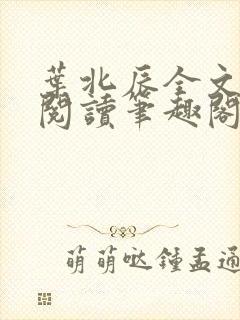 葉北辰全文
閱讀筆趣閣
萌萌哒鍾孟通